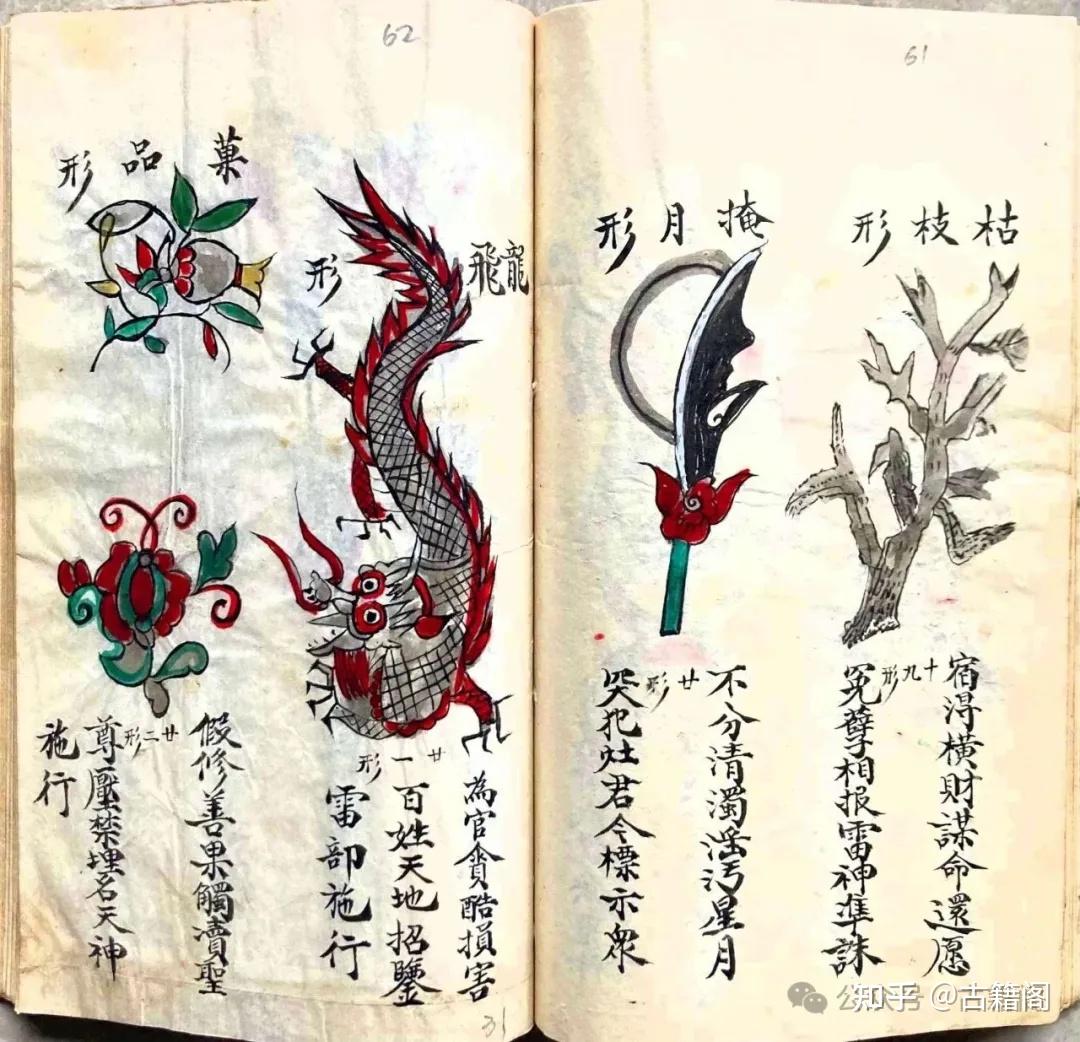 61
枯枝形
十九形
宿得橫財謀命還愿
冤孽相报雷神準誅
掩月形
廿形
不分清濁淫污星月
哭犯灶君令標示眾
62
龍飛形
廿一形
為官貪酷損害
百姓天地招鑒
雷部施行
菓品形
廿二形
假修善果觸瀆聖
尊壓禁埋名天神
施行
31
知乎 @古籍阁